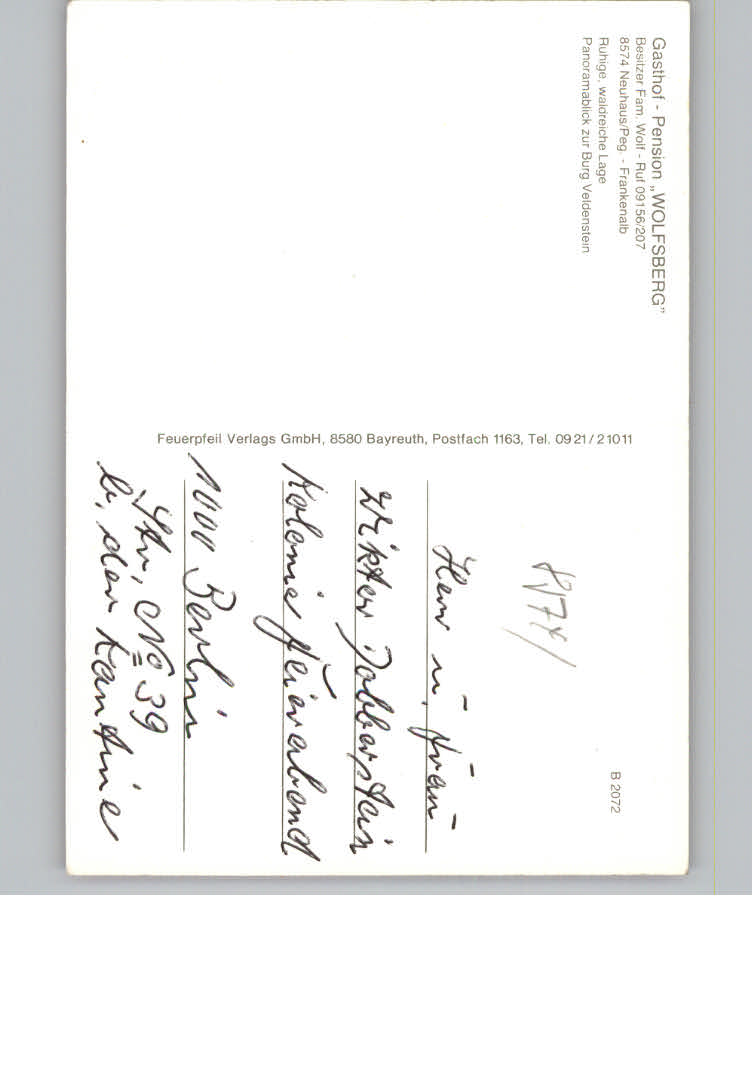 Gasthof - Pension „WOLFSBERG”
Besitzer Fam. Wolf - Ruf 09156/207
8574 Neuhaus/Peg. - Frankenalb
Ruhige, waldreiche Lage
Panoramablick zur Burg Veldenstein
Feuerpfeil Verlags GmbH, 8580 Bayreuth, Postfach 1163, Tel. 0921/21011
B 2072
Herr u. Frau
Dobberstein
Kolonie Feierabend
1000 Berlin
Str. No 39
b. der Kantine